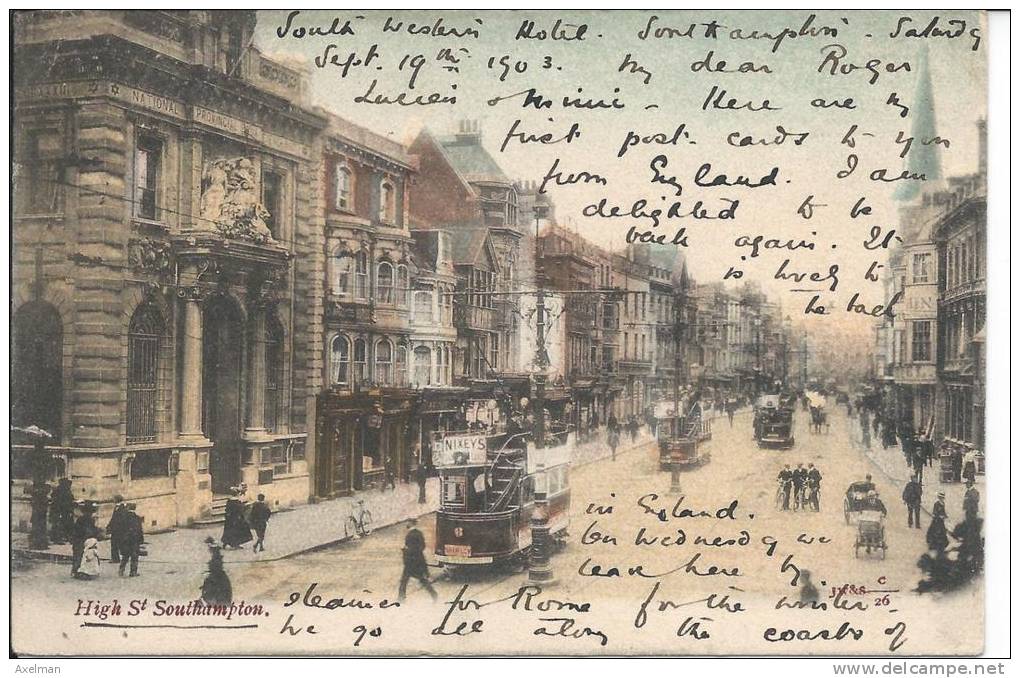 South Western Hotel. Southampton. Saturday
Sept. 19th 1903. My dear Roger
Lucien & Minnie - Here are my
first post-cards to you
from England. I am
delighted to be
back again. It
is lovely to
be back
in England.
On Wednesday we
leave here by
steamer for Rome for the winter
we go all along the coasts of
NATIONAL PROVINCIAL BANK
NIXEY'S
High St Southampton.
JW&S C
26
Axelman
www.delcampe.net